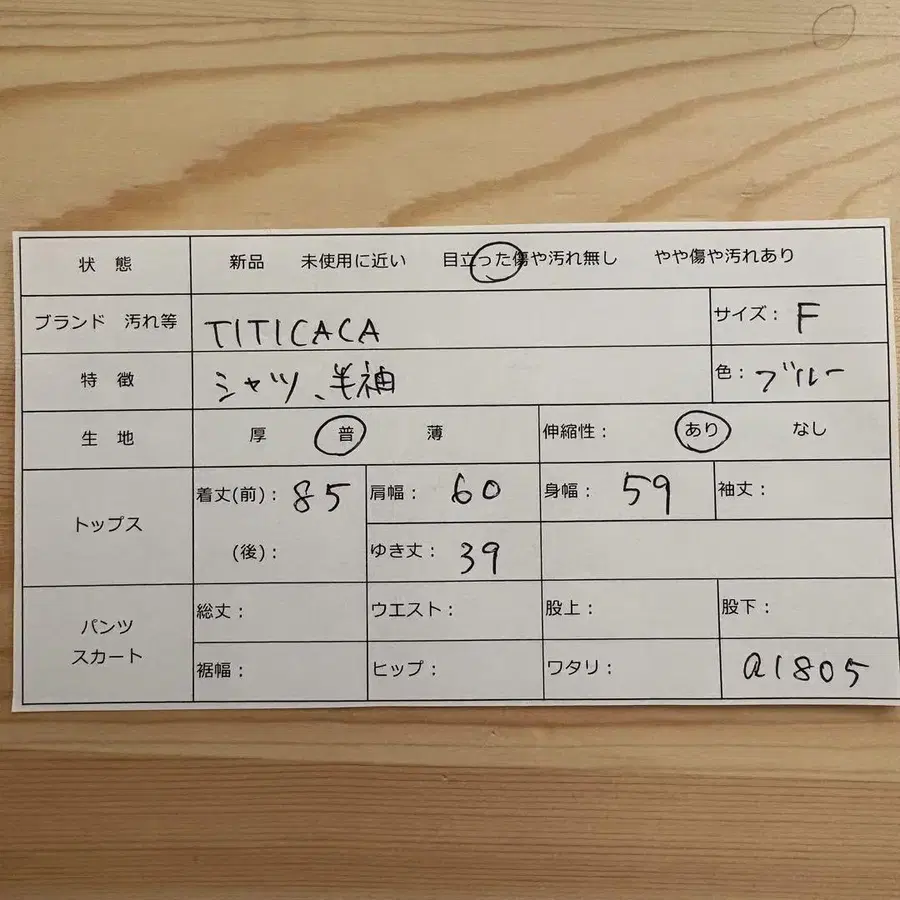 状 態 新品 未使用に近い 目立った傷や汚れ無し やや傷や汚れあり
ブランド 汚れ等 TITICACA サイズ: F
特 徴 シャツ、半袖 色: ブルー
生 地 厚 普 薄 伸縮性: あり なし
トップス 着丈(前): 85 肩幅: 60 身幅: 59 袖丈:
(後): ゆき丈: 39
パンツ スカート 総丈: ウエスト: 股上: 股下:
裾幅: ヒップ: ワタリ: a1805